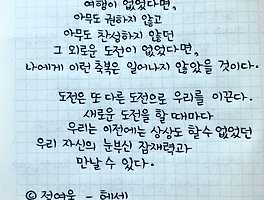 여행이 없었다면,
아무도 권하지 않고
아무도 찬성하지 않던
그 외로운 도전이 없었다면,
나에게 이런 축복은 일어나지 않았을 것이다.
도전은 또 다른 도전으로 우리를 이끈다.
새로운 도전을 할 때마다
우리는 이전에는 상상도 할 수 없었던
우리 자신의 눈부신 잠재력과
만날 수 있다.
© 정여울 - 헤세